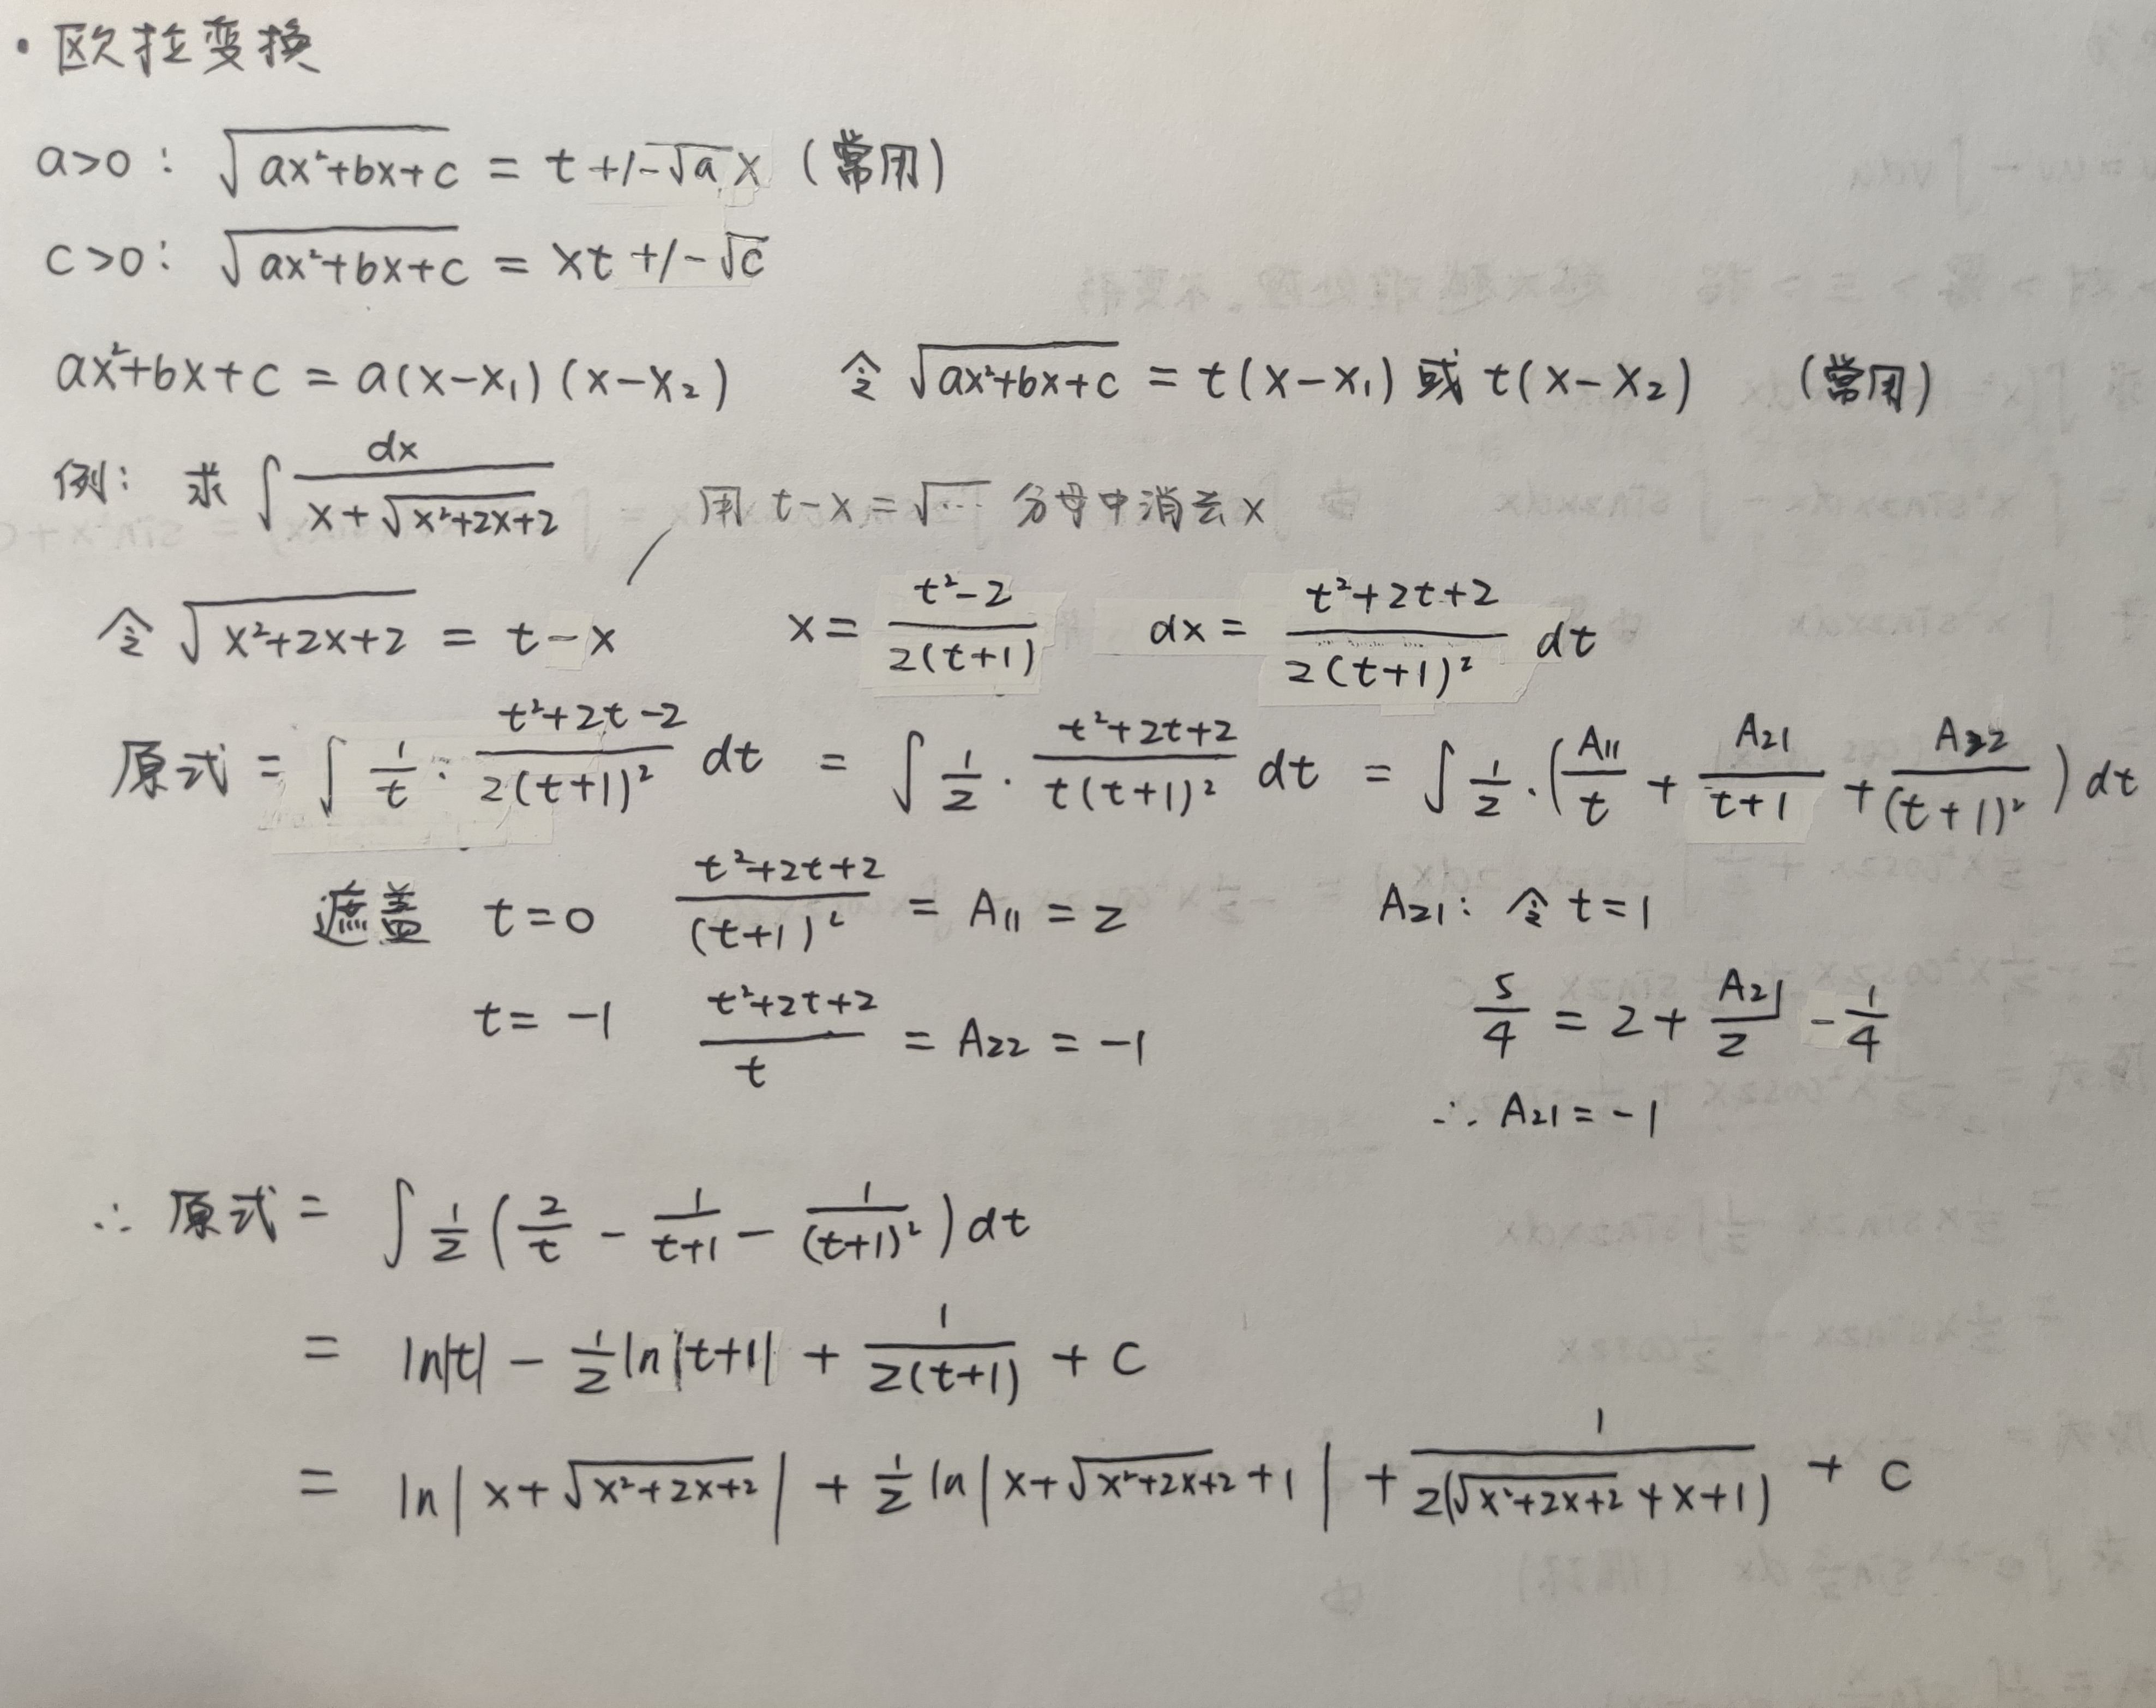 · 欧拉变换
a>0 : √(ax²+bx+c) = t +/- √a x (常用)
c>0 : √(ax²+bx+c) = xt +/- √c
ax²+bx+c = a(x-x₁)(x-x₂) 令 √(ax²+bx+c) = t(x-x₁) 或 t(x-x₂) (常用)
例: 求 ∫ dx/(x+√(x²+2x+2))
用 t-x = √… 分母中消去 x
令 √(x²+2x+2) = t-x x = (t²-2)/(2(t+1)) dx = (t²+2t+2)/(2(t+1)²) dt
原式 = ∫ 1/t · (t²+2t-2)/(2(t+1)²) dt = ∫ 1/2 · (t²+2t+2)/(t(t+1)²) dt = ∫ 1/2 · (A₁₁/t + A₂₁/(t+1) + A₂₂/(t+1)²) dt
遮盖 t=0 (t²+2t+2)/(t+1)² = A₁₁ = 2 A₂₁: 令 t=1
t= -1 (t²+2t+2)/t = A₂₂ = -1 5/4 = 2 + A₂₁/2 - 1/4
∴ A₂₁ = -1
∴ 原式 = ∫ 1/2 (2/t - 1/(t+1) - 1/(t+1)²) dt
= ln|t| - 1/2 ln|t+1| + 1/(2(t+1)) + C
= ln|x+√(x²+2x+2)| + 1/2 ln|x+√(x²+2x+2)+1| + 1/(2(√(x²+2x+2)+x+1)) + C